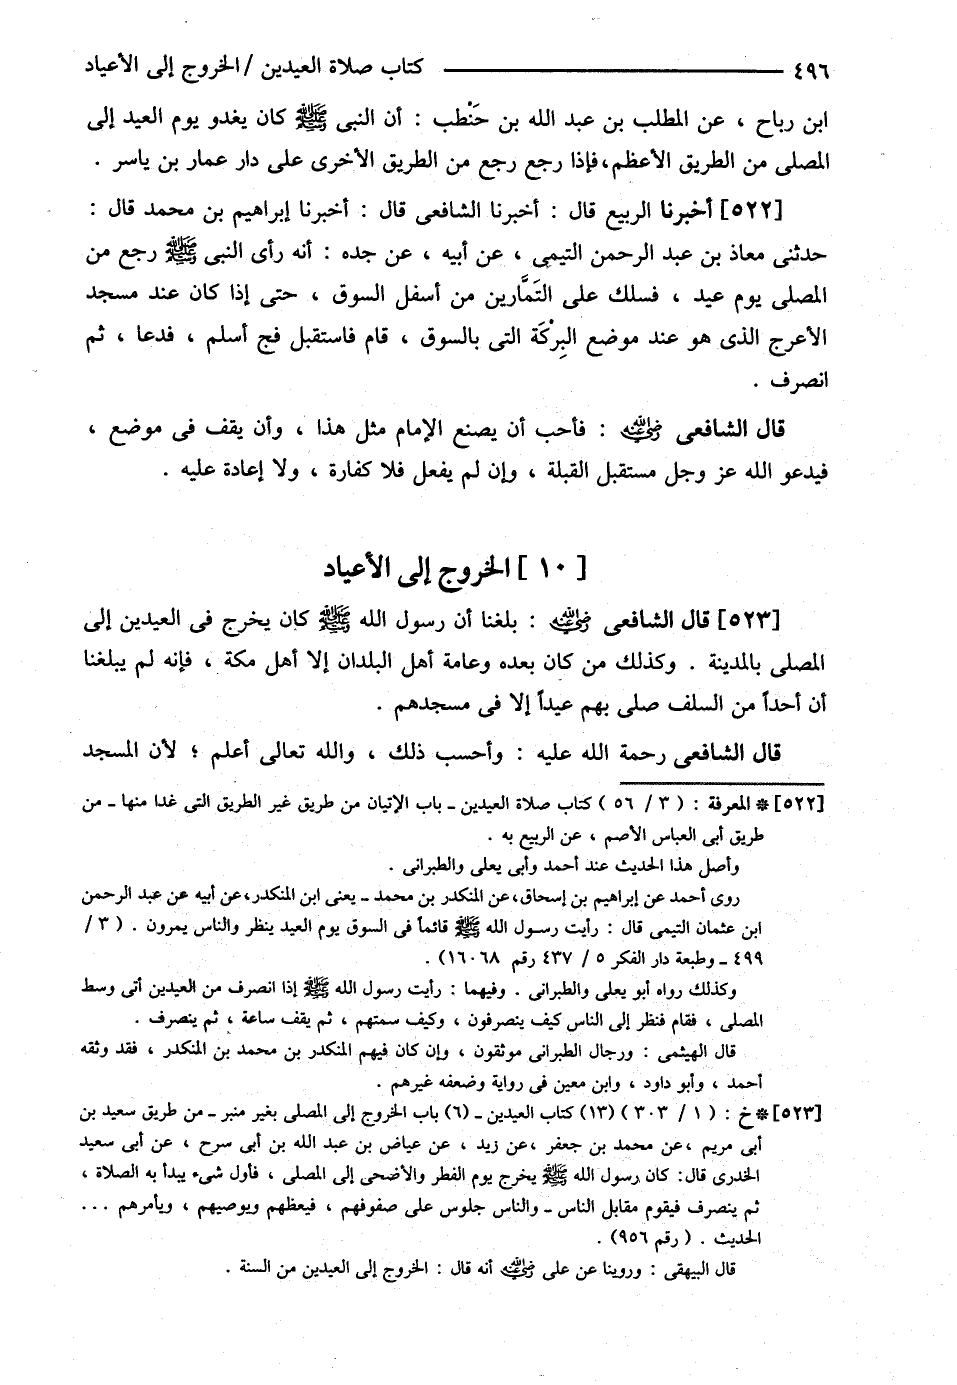 ٤٩٦ ــــــــــــــــ كتاب صلاة العيدين / الخروج إلى الأعياد
ابن رباح ، عن المطلب بن عبد الله بن حَنْطب : أن النبى ﷺ كان يغدو يوم العيد إلى
المصلى من الطريق الأعظم،فإذا رجع رجع من الطريق الأخرى على دار عمار بن ياسر .
[٥٢٢] أخبرنا الربيع قال : أخبرنا الشافعى قال : أخبرنا إبراهيم بن محمد قال :
حدثنى معاذ بن عبد الرحمن التيمى ، عن أبيه ، عن جده : أنه رأى النبى ﷺ رجع من
المصلى يوم عيد ، فسلك على التَمَّارين من أسفل السوق ، حتى إذا كان عند مسجد
الأعرج الذى هو عند موضع البِرْكَة التى بالسوق ، قام فاستقبل فج أسلم ، فدعا ، ثم
انصرف .
قال الشافعى رضي الله عنه : فأحب أن يصنع الإمام مثل هذا ، وأن يقف فى موضع ،
فيدعو الله عز وجل مستقبل القبلة ، وإن لم يفعل فلا كفارة ، ولا إعادة عليه .
[ ١٠ ] الخروج إلى الأعياد
[٥٢٣] قال الشافعى رضي الله عنه : بلغنا أن رسول الله ﷺ كان يخرج فى العيدين إلى
المصلى بالمدينة . وكذلك من كان بعده وعامة أهل البلدان إلا أهل مكة ، فإنه لم يبلغنا
أن أحداً من السلف صلى بهم عيداً إلا فى مسجدهم .
قال الشافعى رحمة الله عليه : وأحسب ذلك ، والله تعالى أعلم ؛ لأن المسجد
[٥٢٢] * المعرفة : ( ٣ / ٥٦ ) كتاب صلاة العيدين ـ باب الإتيان من طريق غير الطريق التى غدا منها ـ من
طريق أبى العباس الأصم ، عن الربيع به .
وأصل هذا الحديث عند أحمد وأبى يعلى والطبرانى .
روى أحمد عن إبراهيم بن إسحاق،عن المنكدر بن محمد ـ يعنى ابن المنكدر،عن أبيه عن عبد الرحمن
ابن عثمان التيمى قال : رأيت رسول الله ﷺ قائماً فى السوق يوم العيد ينظر والناس يمرون . ( ٣ /
٤٩٩ ـ وطبعة دار الفكر ٥ / ٤٣٧ رقم ١٦٠٦٨) .
وكذلك رواه أبو يعلى والطبرانى . وفيهما : رأيت رسول الله ﷺ إذا انصرف من العيدين أتى وسط
المصلى ، فقام فنظر إلى الناس كيف ينصرفون ، وكيف سمتهم ، ثم يقف ساعة ، ثم ينصرف .
قال الهيثمى : ورجال الطبرانى موثقون ، وإن كان فيهم المنكدر بن محمد بن المنكدر ، فقد وثقه
أحمد ، وأبو داود ، وابن معين فى رواية وضعفه غيرهم .
[٥٢٣] *خ : ( ١ / ٣٠٣ ) (١٣) كتاب العيدين ـ (٦) باب الخروج إلى المصلى بغير منبر ـ من طريق سعيد بن
أبى مريم ،عن محمد بن جعفر ،عن زيد ، عن عياض بن عبد الله بن أبى سرح ، عن أبى سعيد
الخدرى قال: كان رسول الله ﷺ يخرج يوم الفطر والأضحى إلى المصلى ، فأول شىء يبدأ به الصلاة ،
ثم ينصرف فيقوم مقابل الناس ـ والناس جلوس على صفوفهم ، فيعظهم ويوصيهم ، ويأمرهم ...
الحديث . ( رقم ٩٥٦) .
قال البيهقى : وروينا عن على رضي الله عنه أنه قال : الخروج إلى العيدين من السنة .